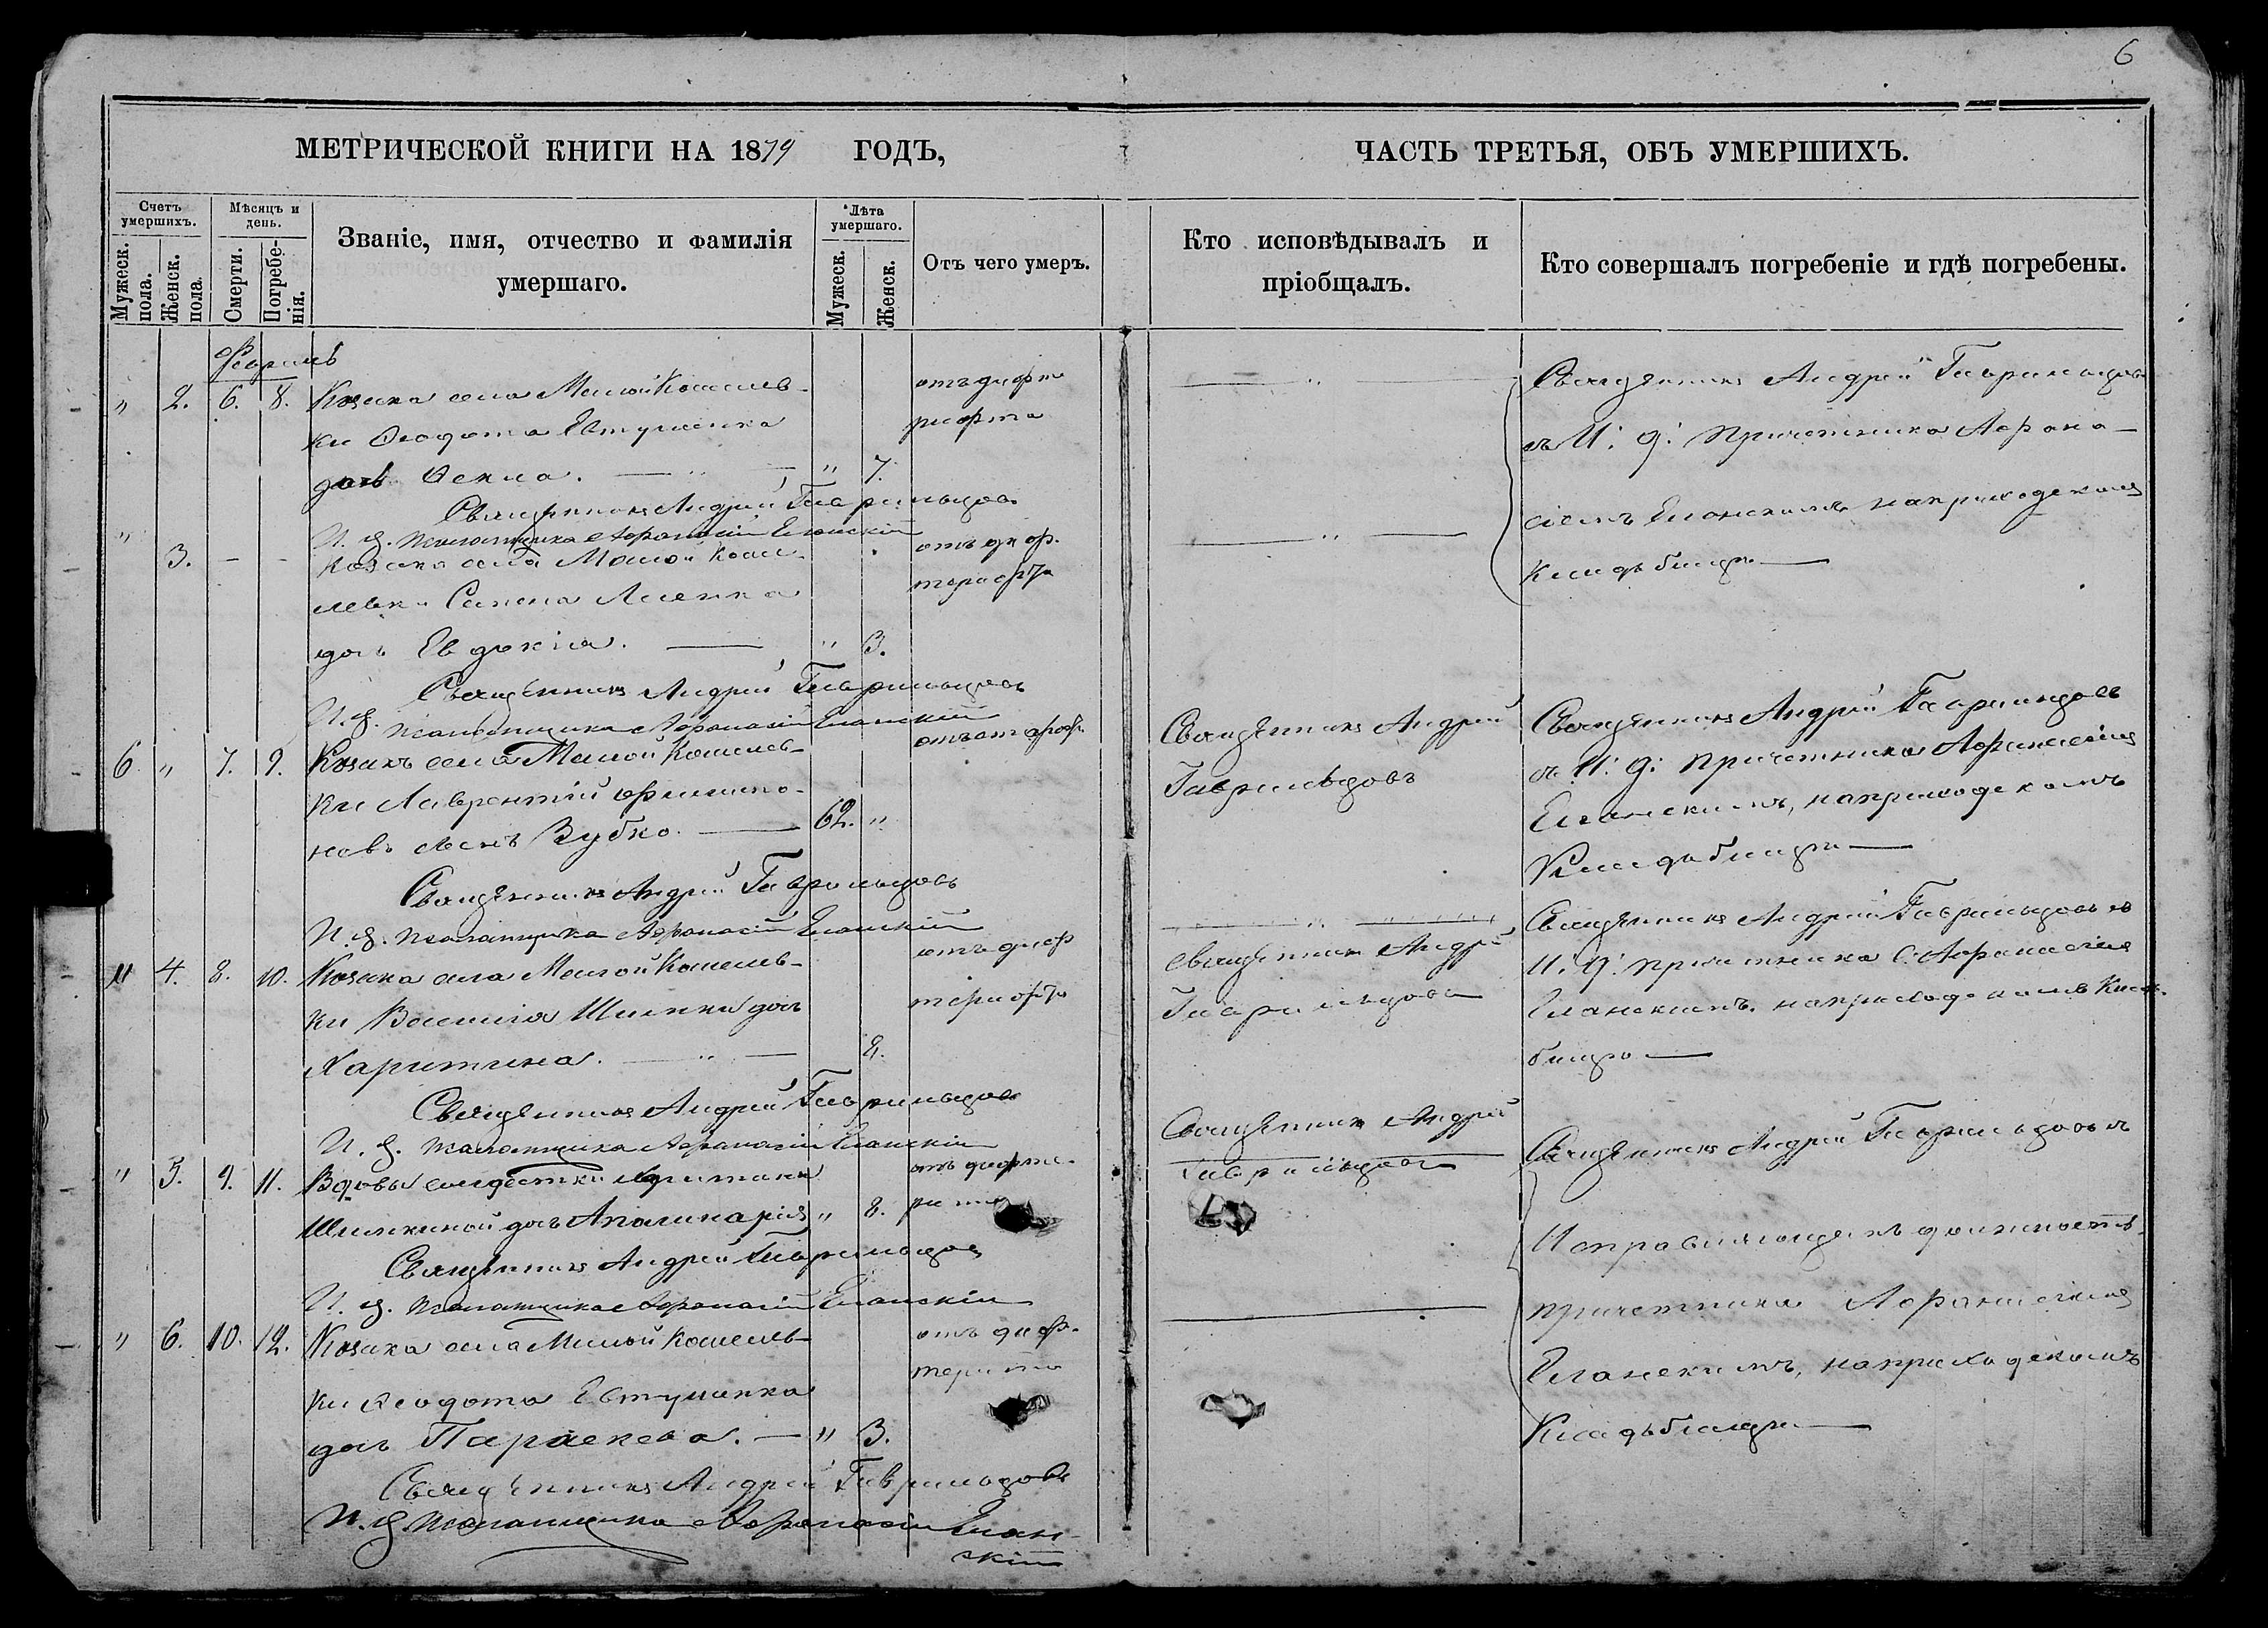 6
МЕТРИЧЕСКОЙ КНИГИ НА 1879 ГОДЪ,
ЧАСТЬ ТРЕТЬЯ, ОБЪ УМЕРШИХЪ.
Счетъ умершихъ.
Мужеск. пола.
Женск. пола.
Мѣсяцъ и день.
Смерти.
Погребенія.
Званіе, имя, отчество и фамилія
умершаго.
Лѣта умершаго.
Мужеск.
Женск.
Отъ чего умеръ.
Кто исповѣдывалъ и
пріобщалъ.
Кто совершалъ погребеніе и гдѣ погребены.
" 2. 6. 8. Козака села Малой Кошелев-
ки Ѳеодота Евтушенка
дочь Ѳекла. — " — " 7.
отъ диф
Священникъ Андрей Гаврильцовъ
съ И. д. причетника Афана-
сіемъ Еланскимъ на приходскомъ
кладбищѣ —
Священникъ Андрей Гаврильцовъ
И. д. псаломщика Афанасій Еланскій
" 3. - - Козака села Малой Коше-
левки
дочь Евдокія. — " 3.
отъ диф-
Священникъ Андрей Гаврильцовъ
И. д. псаломщика Афанасій Еланскій
6 " 7. 9. Козакъ села Малой Кошелев-
ки Лаврентій Филимо-
новъ сынъ Зубко. — 62. "
Священникъ Андрей
Гаврильцовъ
Священникъ Андрей Гаврильцовъ
съ И. д. причетника Афанасіемъ
Еланскимъ, на приходскомъ
кладбищѣ —
Священникъ Андрей Гаврильцовъ
И. д. псаломщика Афанасій Еланскій
" 4. 8. 10. Козака села Малой Кошелев-
ки Василія дочь
Харитина. — " — 8.
отъ диф
Священникъ Андрей
Гаврильцовъ
Священникъ Андрей Гаврильцовъ съ
И. д. причетника Афанасіемъ
Еланскимъ на приходскомъ клад-
бищѣ —
Священникъ Андрей Гаврильцовъ
И. д. псаломщика Афанасій Еланскій
" 5. 9. 11. Вдовы солдатки
дочь Апалинарія " 8.
отъ дифте-
рита
Священникъ Андрей
Гаврильцовъ
Священникъ Андрей Гаврильцовъ съ
Исправляющемъ должность
причетника Афанасіемъ
Еланскимъ, на приходскомъ
кладбищѣ —
Священникъ Андрей Гаврильцовъ
И. д. псаломщика Афанасій Еланскій
" 6. 10. 12. Козака села Малой Кошелев-
ки Ѳеодота Евтушенка
дочь Параскева. — " 3.
отъ диф-
терита
Священникъ Андрей Гаврильцовъ
И. д. псаломщика Афанасій Елан-
скій